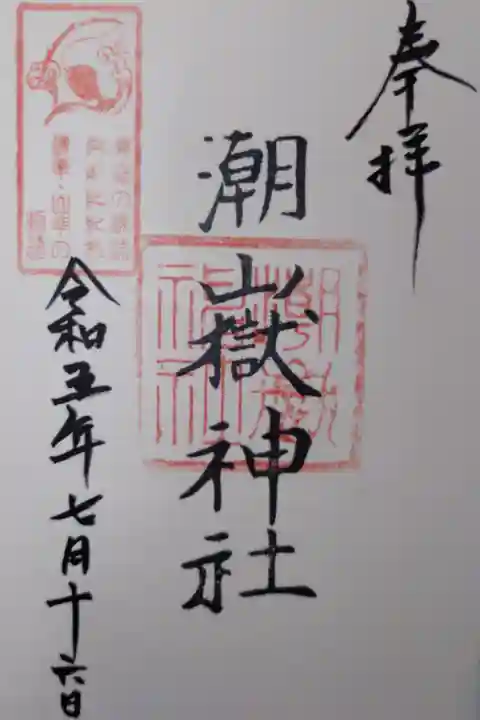 奉拝
潮嶽神社
潮嶽神社
令和五年七月十六日